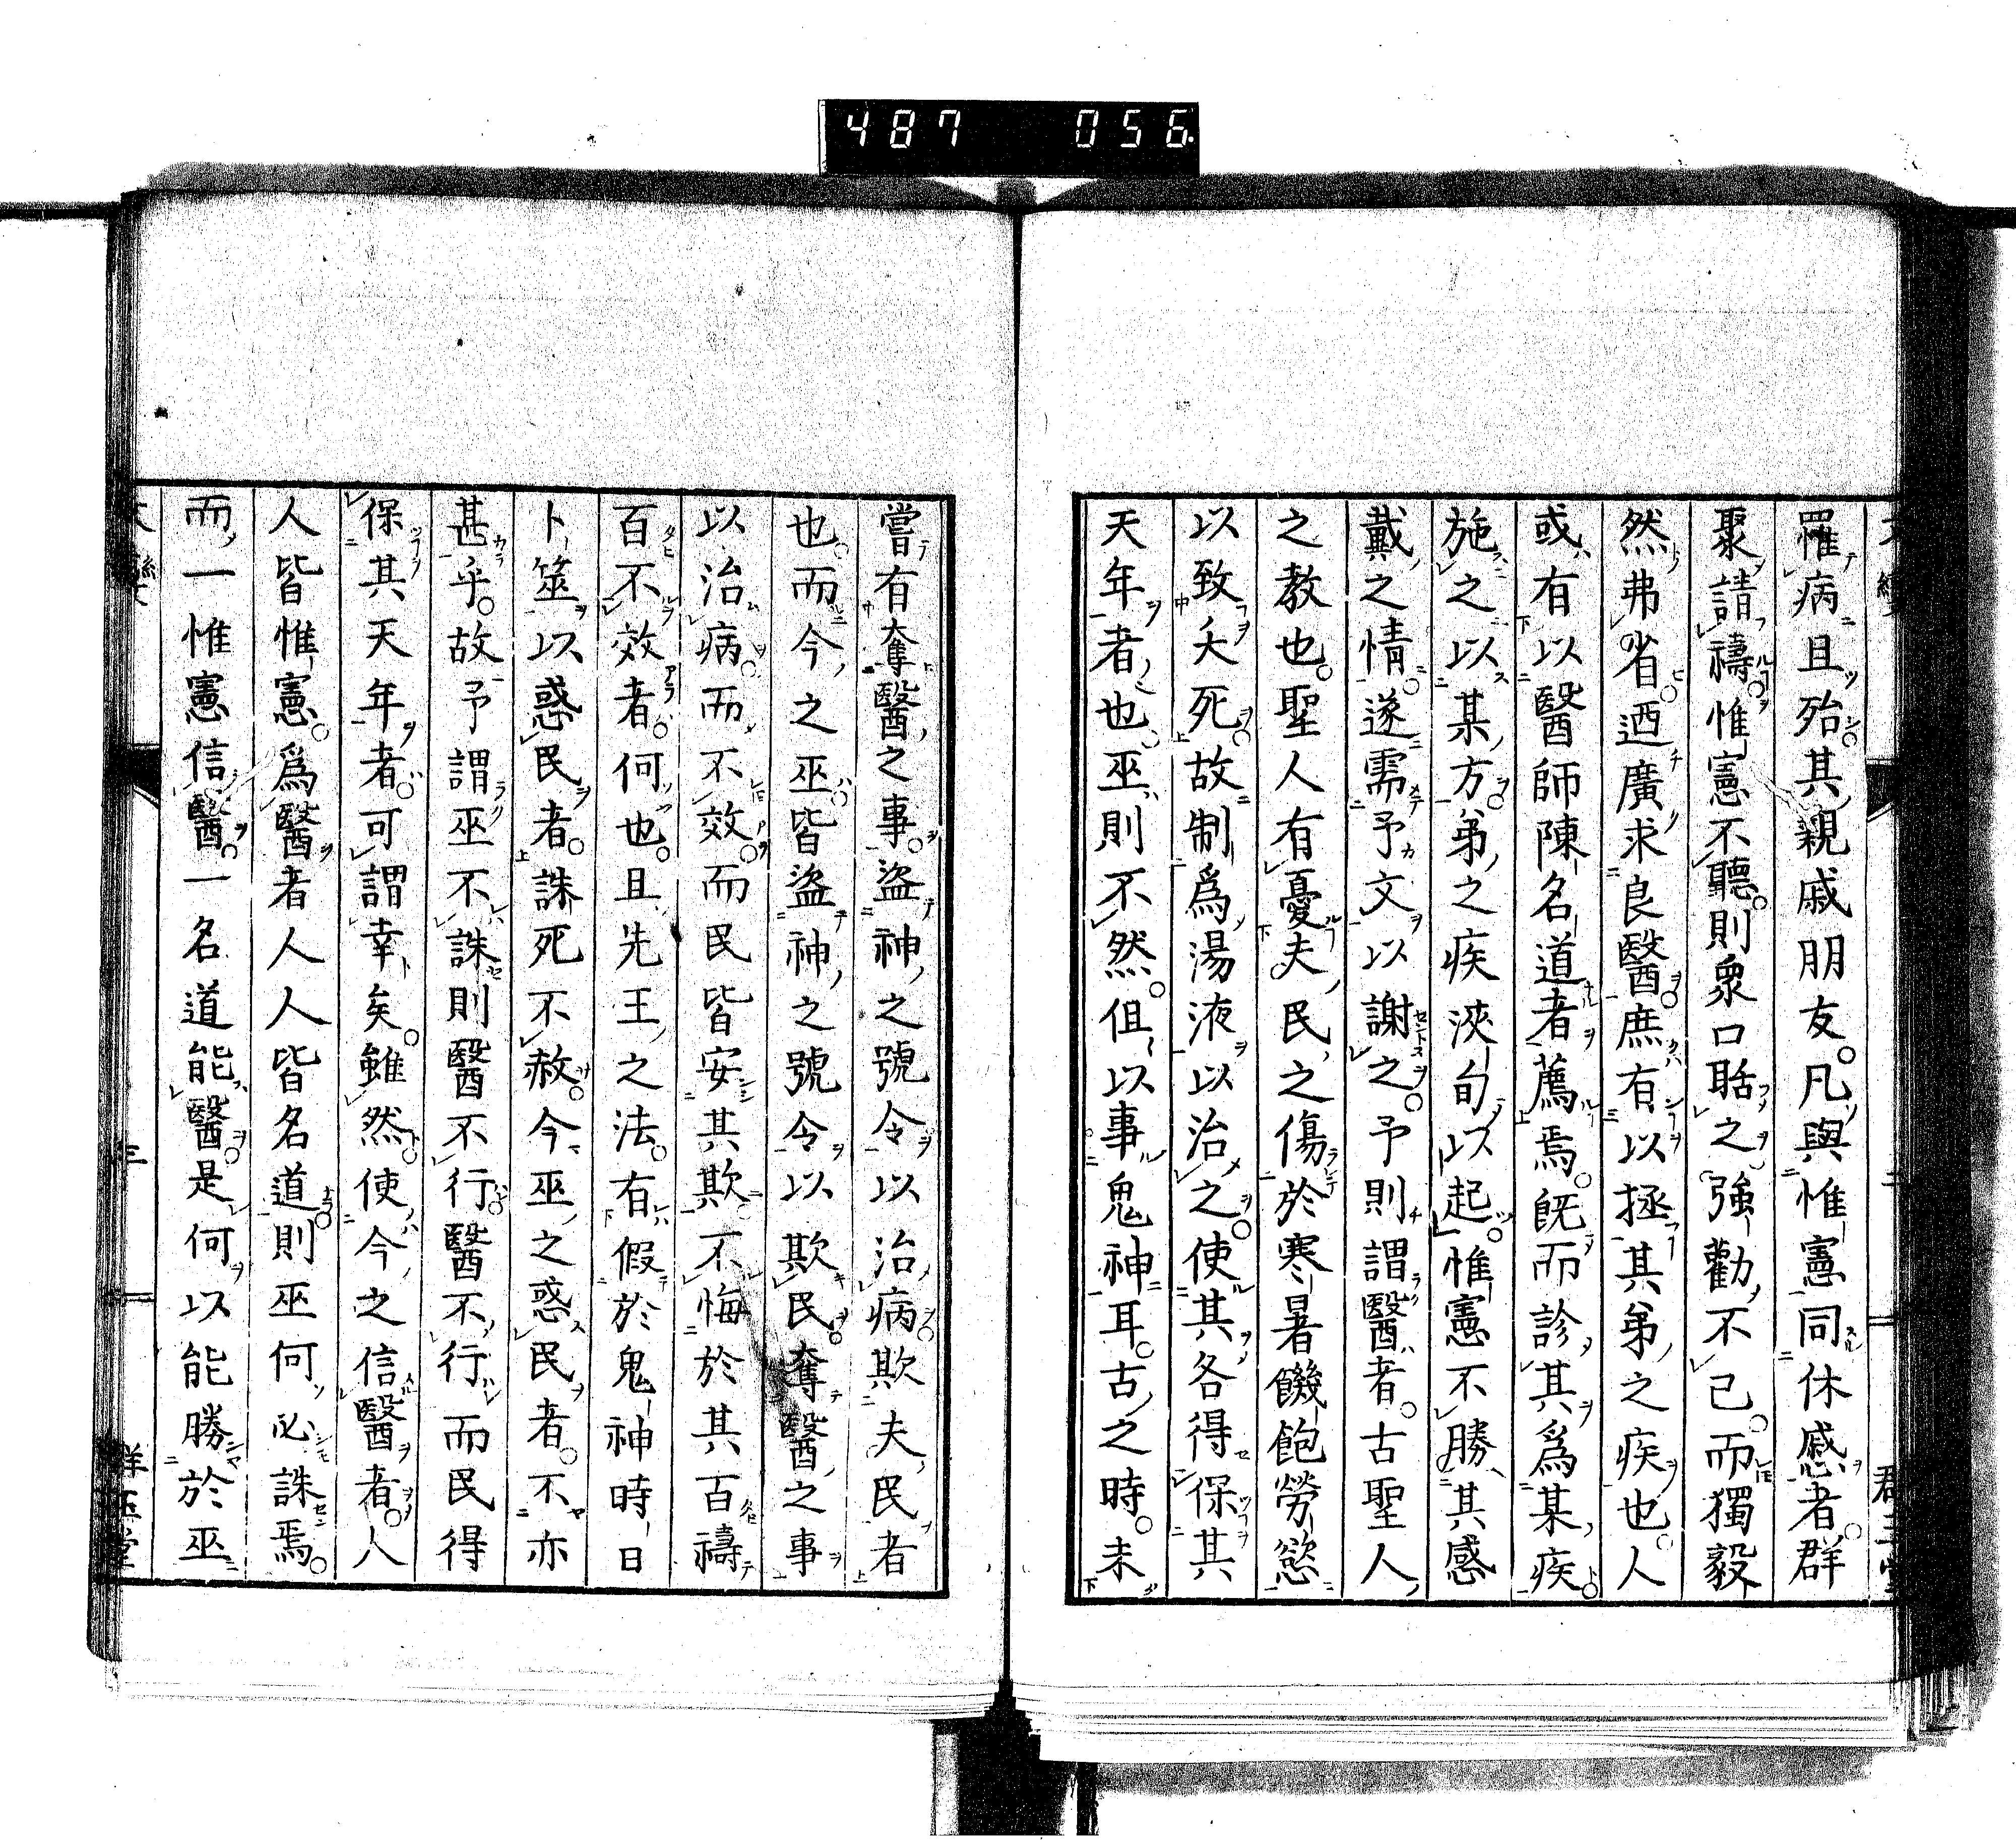 487 056
罹病且殆其親戚朋友凡與惟憲同休慼者群
聚請禱惟憲不聽則衆口聒之強勸不已而獨毅
然弗省迺廣求良醫庶有以拯其弟之疾也人
或有以醫師陳名道者薦焉旣而診其爲某疾
施之以某方弟之疾浹旬以起惟憲不勝其感
戴之情遂需予文以謝之予則謂醫者古聖人
之教也聖人有憂夫民之傷於寒暑饑飽勞慾
以致夭死故制爲湯液以治之使其各得保其
天年者也巫則不然但以事鬼神耳古之時未
嘗有奪醫之事盜神之號令以治病欺夫民者
也而今之巫皆盜神之號令以欺民奪醫之事
以治病而不效而民皆安其欺不悔於其百禱
百不效者何也且先王之法有假於鬼神時日
卜筮以惑民者誅死不赦今巫之惑民者不亦
甚乎故予謂巫不誅則醫不行醫不行而民得
保其天年者可謂幸矣雖然使今之信醫者人
人皆惟憲爲醫者人人皆名道則巫何必誅焉
而一惟憲信醫一名道能醫是何以能勝於巫